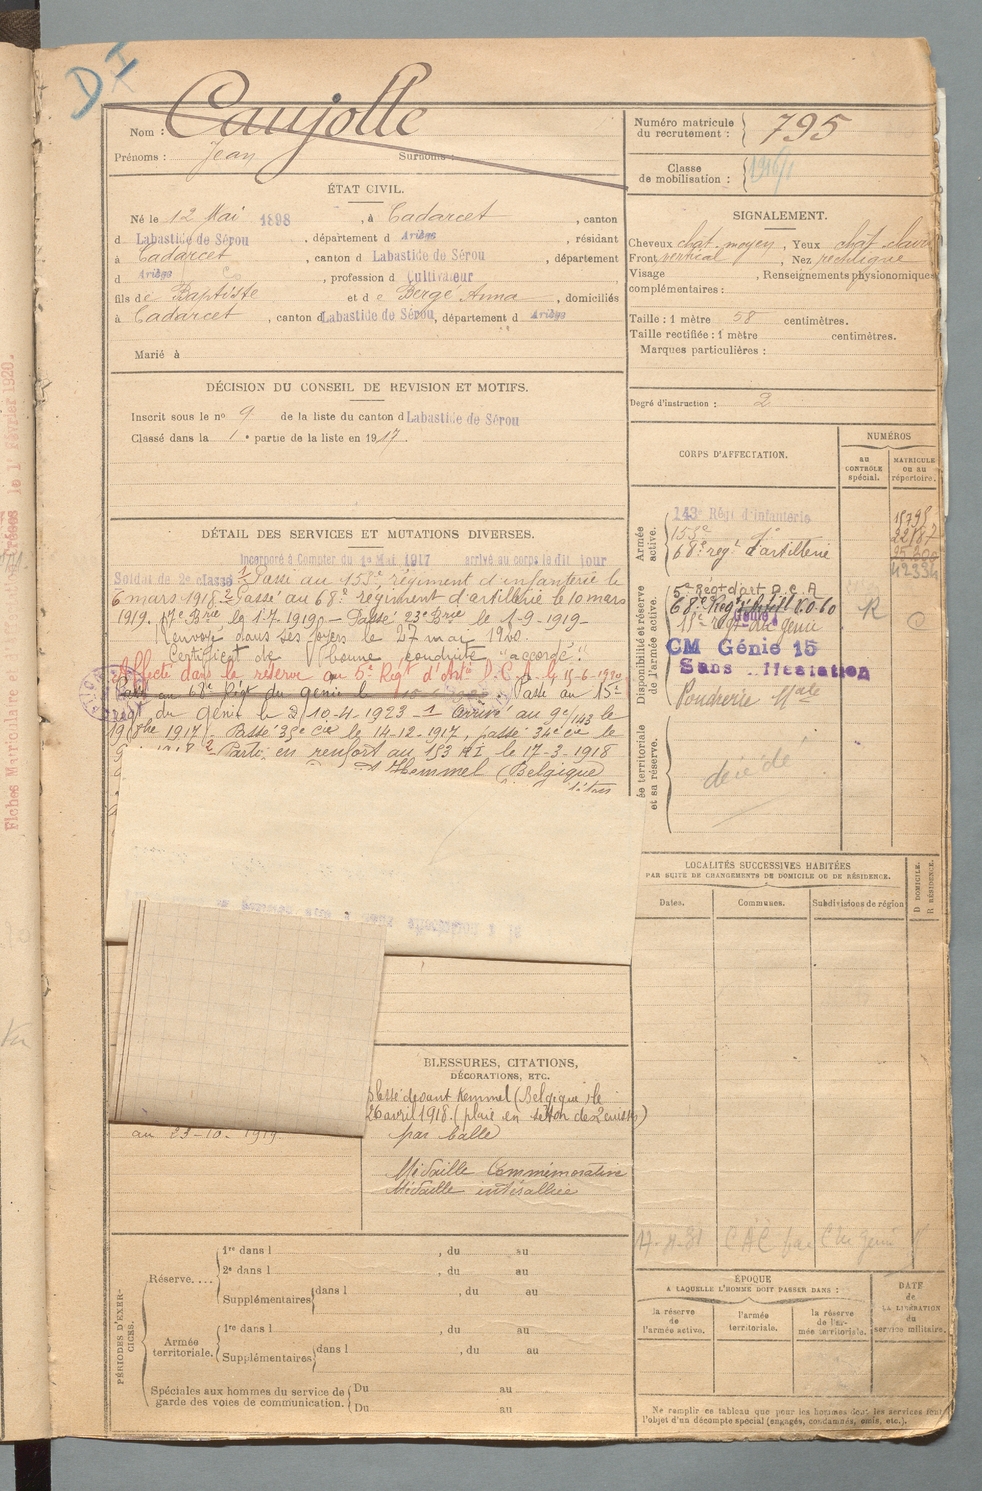 D I
Nom : Caujolle
Prénoms : Jean Surnoms :
ÉTAT CIVIL.
Né le 12 Mai 1898, à Cadarcet, canton
d Labastide de Sérou, département d Ariège, résidant
à Cadarcet, canton d Labastide de Sérou, département
d Ariège, profession d Cultivateur
fils de Baptiste et de Bergé Anna, domiciliés
à Cadarcet, canton d Labastide de Sérou, département d Ariège
Marié à
DÉCISION DU CONSEIL DE REVISION ET MOTIFS.
Inscrit sous le no 9 de la liste du canton d Labastide de Sérou
Classé dans la 1e partie de la liste en 1917.
DÉTAIL DES SERVICES ET MUTATIONS DIVERSES.
Incorporé à Compter du 1e Mai 1917 arrivé au corps le dit jour
Soldat de 2e classe 1- Passé au 153e régiment d'infanterie le
6 mars 1918. 2- Passé au 68e régiment d'artillerie le 10 mars
1919. 17e Brie le 1-7-1919 - Passé 23e Brie le 1-9-1919-
Renvoyé dans ses foyers le 27 mai 1920.
Certificat de bonne conduite "accordé".
Affecté dans la réserve au 5e Régt d'Artie D.C.A. le 15-6-1920
Passé au 68e Régt du génie le Passé au 15e
Régt du génie le 2/10-4-1923 - 1 Arrivé au 9e/143 le
19 1917. Passé 35e Cie le 14-12-1917, passé 34e cie le
2 Parti en renfort au 153 RI le 17-3-1918
Hemmel (Belgique)
au 23-10-1919
BLESSURES, CITATIONS,
DÉCORATIONS, ETC.
Blessé devant Kemmel (Belgique) le
26 avril 1918. (plaie en séton des 2 cuisses)
par balle
Médaille Commémorative
Médaille interalliée
PÉRIODES D'EXERCICES.
Réserve....
1re dans l , du au
2e dans l , du au
Supplémentaires dans l , du au
Armée territoriale.
1re dans l , du au
Supplémentaires dans l , du au
Spéciales aux hommes du service de garde des voies de communication.
Du au
Du au
Numéro matricule du recrutement : 795
Classe de mobilisation :
SIGNALEMENT.
Cheveux chat. moyen, Yeux chat. clair
Front vertical, Nez rectiligne
Visage , Renseignements physionomiques
complémentaires :
Taille : 1 mètre 58 centimètres.
Taille rectifiée : 1 mètre centimètres.
Marques particulières :
Degré d'instruction : 2
CORPS D'AFFECTATION.
NUMÉROS
au CONTRÔLE spécial.
MATRICULE ou au répertoire.
Armée active.
143e Régt d'infanterie
153e do
68e régt d'artillerie
Disponibilité et réserve de l'armée active.
5e Régt d'art D.C.A
15e régt du génie
R
CM Génie 15
Sans affectation
Poudrerie Nale
Armée territoriale et sa réserve.
décédé
LOCALITÉS SUCCESSIVES HABITÉES
PAR SUITE DE CHANGEMENTS DE DOMICILE OU DE RÉSIDENCE.
Dates. Communes. Subdivisions de région
D DOMICILE. R RÉSIDENCE.
ÉPOQUE
A LAQUELLE L'HOMME DOIT PASSER DANS :
la réserve de l'armée active.
l'armée territoriale.
la réserve de l'armée territoriale.
DATE de LA LIBÉRATION du service militaire.
Ne remplir ce tableau que pour les hommes dont les services font
l'objet d'un décompte spécial (engagés, condamnés, omis, etc.).